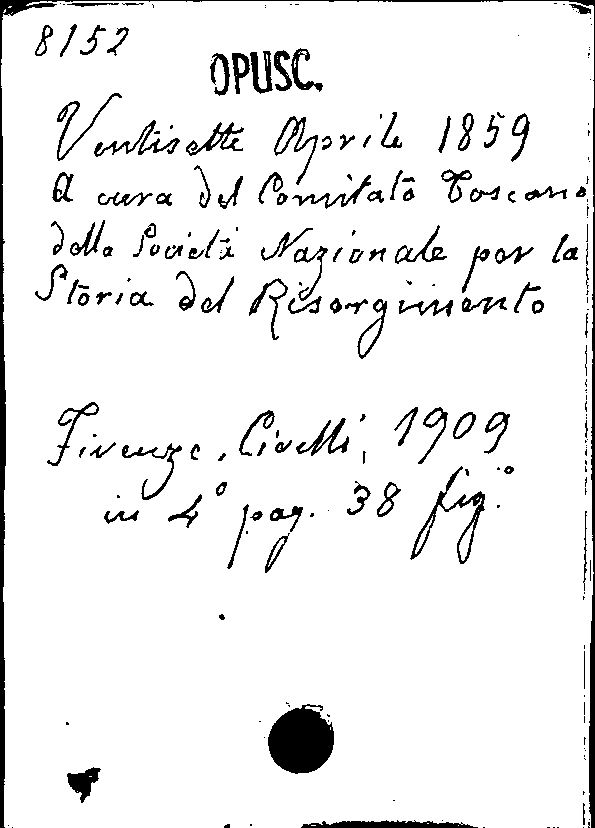 8152
OPUSC.
Ventisette Aprile 1859
A cura del Comitato Toscano
della Società Nazionale per la
Storia del Risorgimento
Firenze, Civelli, 1909
in 4° pag. 38 fig.°